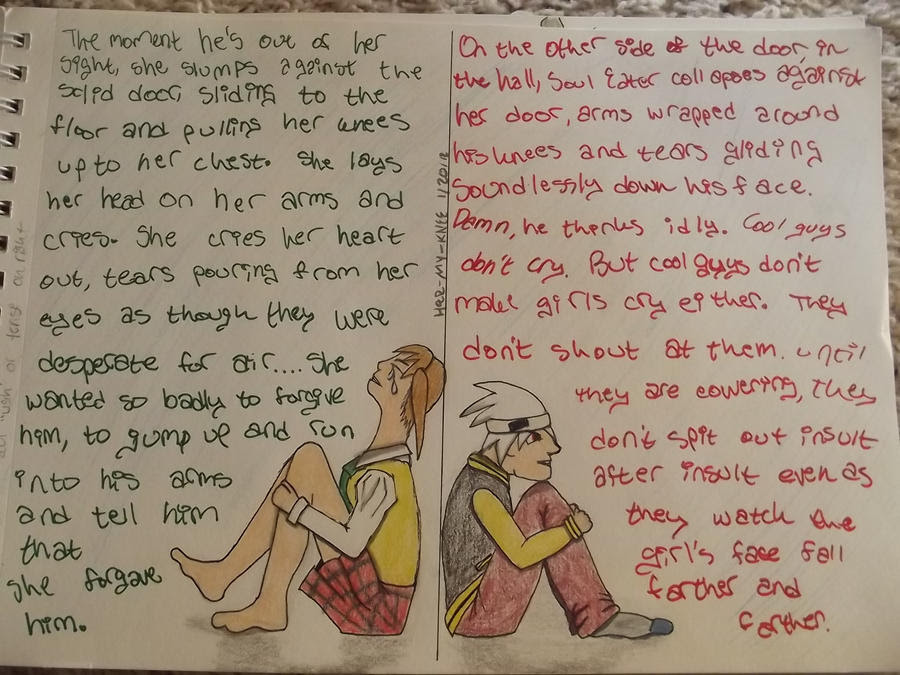 The moment he's out of her
sight, she slumps against the
solid door, sliding to the
floor and pulling her knees
up to her chest. She lays
her head on her arms and
cries. She cries her heart
out, tears pouring from her
eyes as though they were
desperate for air.... She
wanted so badly to forgive
him, to gump up and run
into his arms
and tell him
that
she forgave
him.
HER-MY-KNEE
On the other side of the door, in
the hall, Soul Eater collapses against
her door, arms wrapped around
his knees and tears gliding
soundlessly down his face.
Damn, he thinks idly. Cool guys
don't cry. But cool guys don't
make girls cry either. They
don't shout at them. until
they are cowering, They
don't spit out insult
after insult even as
they watch the
girl's face fall
farther and
farther.